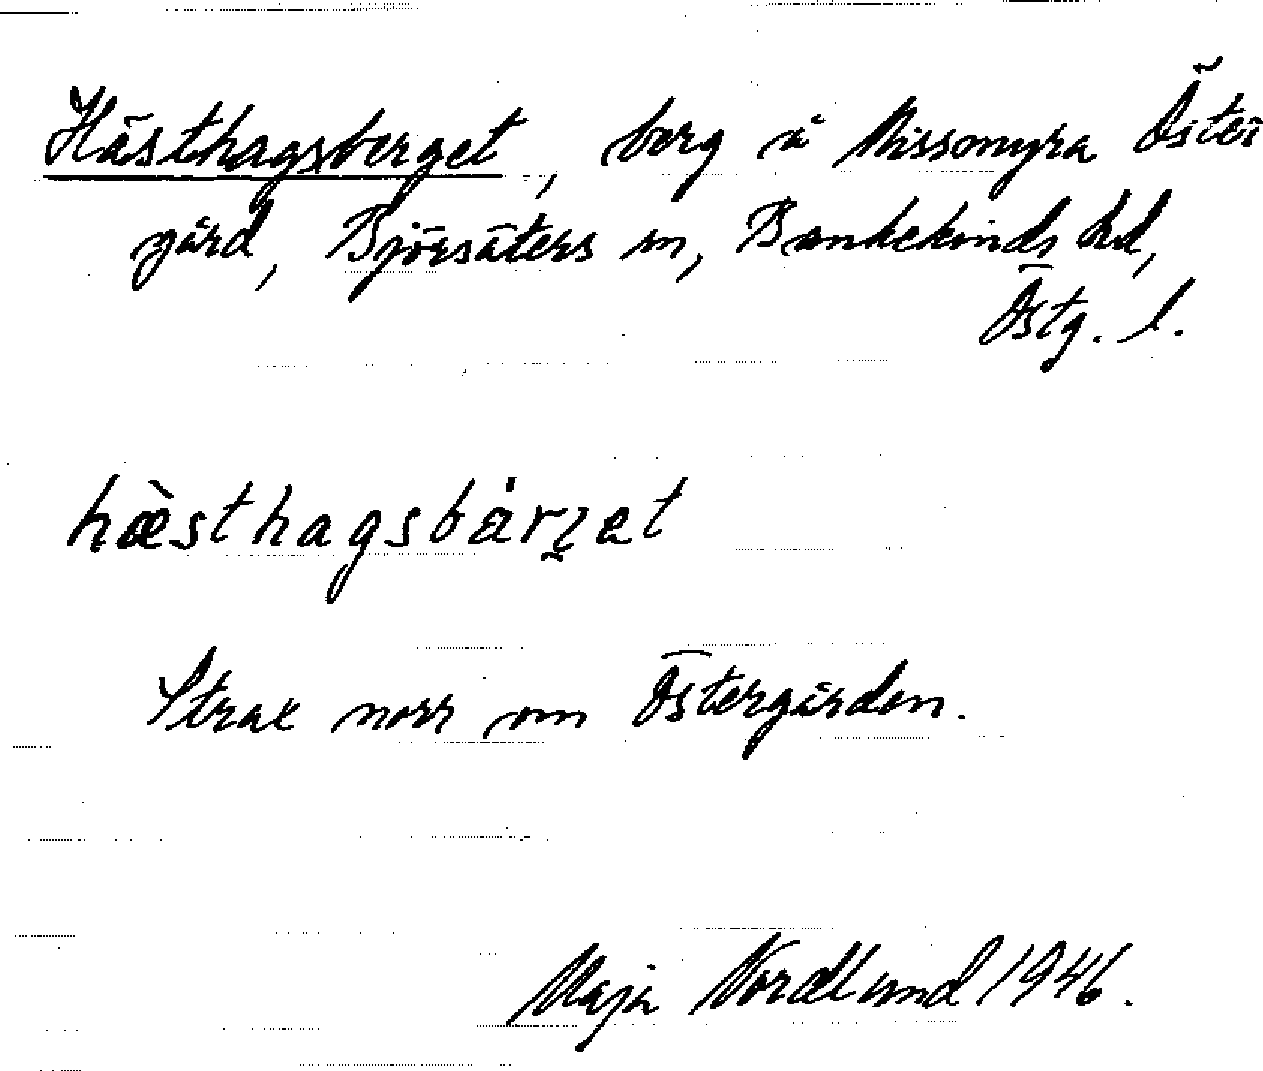 Hästhagsberget, berg å Missomyra Öster
gård, Björsäters sn, Bankekinds hd,
Östg. l.
hæ̀sthagsbárʒ̯et
Strax norr om Östergården.
Maja Nordlund 1946.